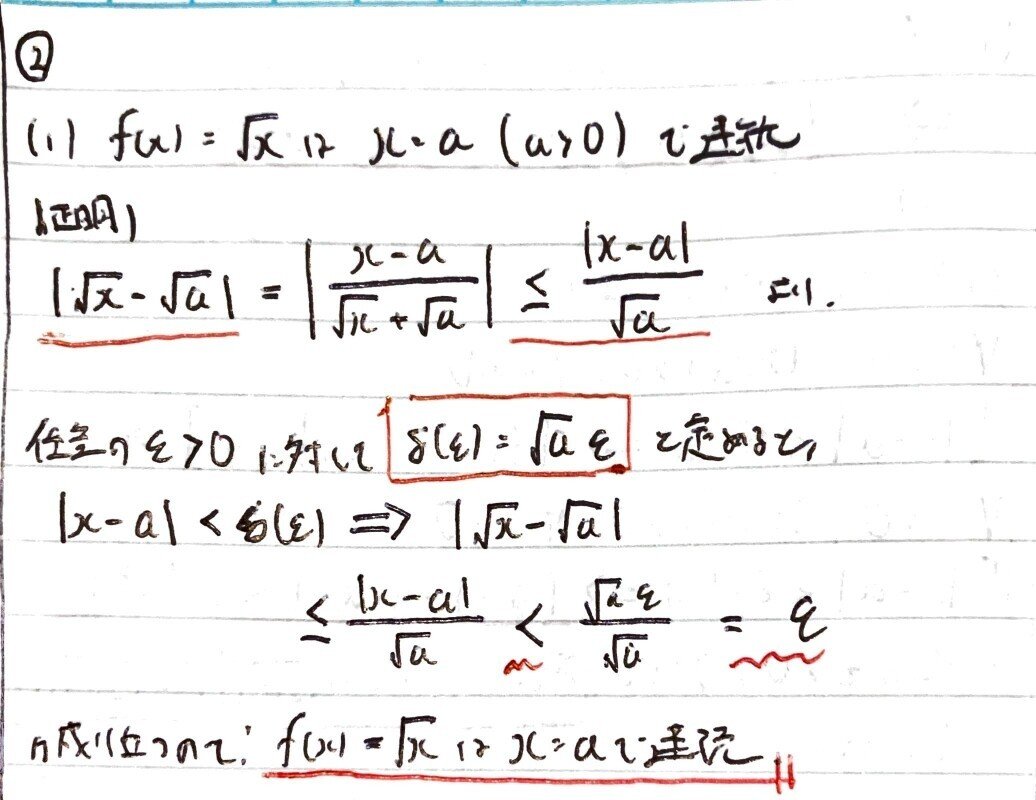 ②
(1) f(x) = √x は x = a (a > 0) で連続
(証明)
|√x - √a| = |(x - a)/(√x + √a)| ≤ |x - a|/√a より.
任意の ε > 0 に対して δ(ε) = √a ε と定めると,
|x - a| < δ(ε) ⟹ |√x - √a|
≤ |x - a|/√a < √a ε/√a = ε
が成り立つので, f(x) = √x は x = a で連続